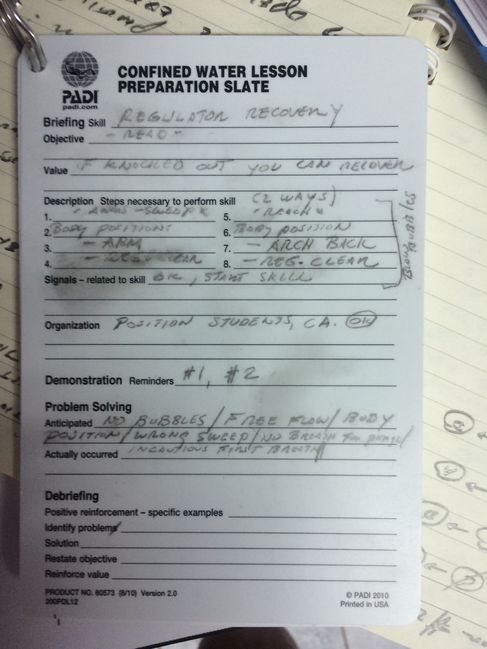 PADI
padi.com
CONFINED WATER LESSON
PREPARATION SLATE
Briefing Skill REGULATOR RECOVERY
Objective - READ -
Value IF KNOCKED OUT YOU CAN RECOVER
Description Steps necessary to perform skill (2 WAYS)
1. "ARM-SWEEP" 5. "REACH"
2. BODY POSITIONS 6. BODY POSITION
3. - ARM 7. - ARCH BACK
4. - REG. CLEAR 8. - REG. CLEAR
BLOW BUBBLES
Signals – related to skill OK, START SKILL
Organization POSITION STUDENTS, CA. OK
Demonstration Reminders #1, #2
Problem Solving
Anticipated NO BUBBLES / FREE FLOW / BODY
POSITION / WRONG SWEEP / NO BREATH FOR PURGE /
Actually occurred INCAUTIOUS FIRST BREATH
Debriefing
Positive reinforcement – specific examples
Identify problems
Solution
Restate objective
Reinforce value
PRODUCT NO. 60573 (8/10) Version 2.0
200PDL12
© PADI 2010
Printed in USA